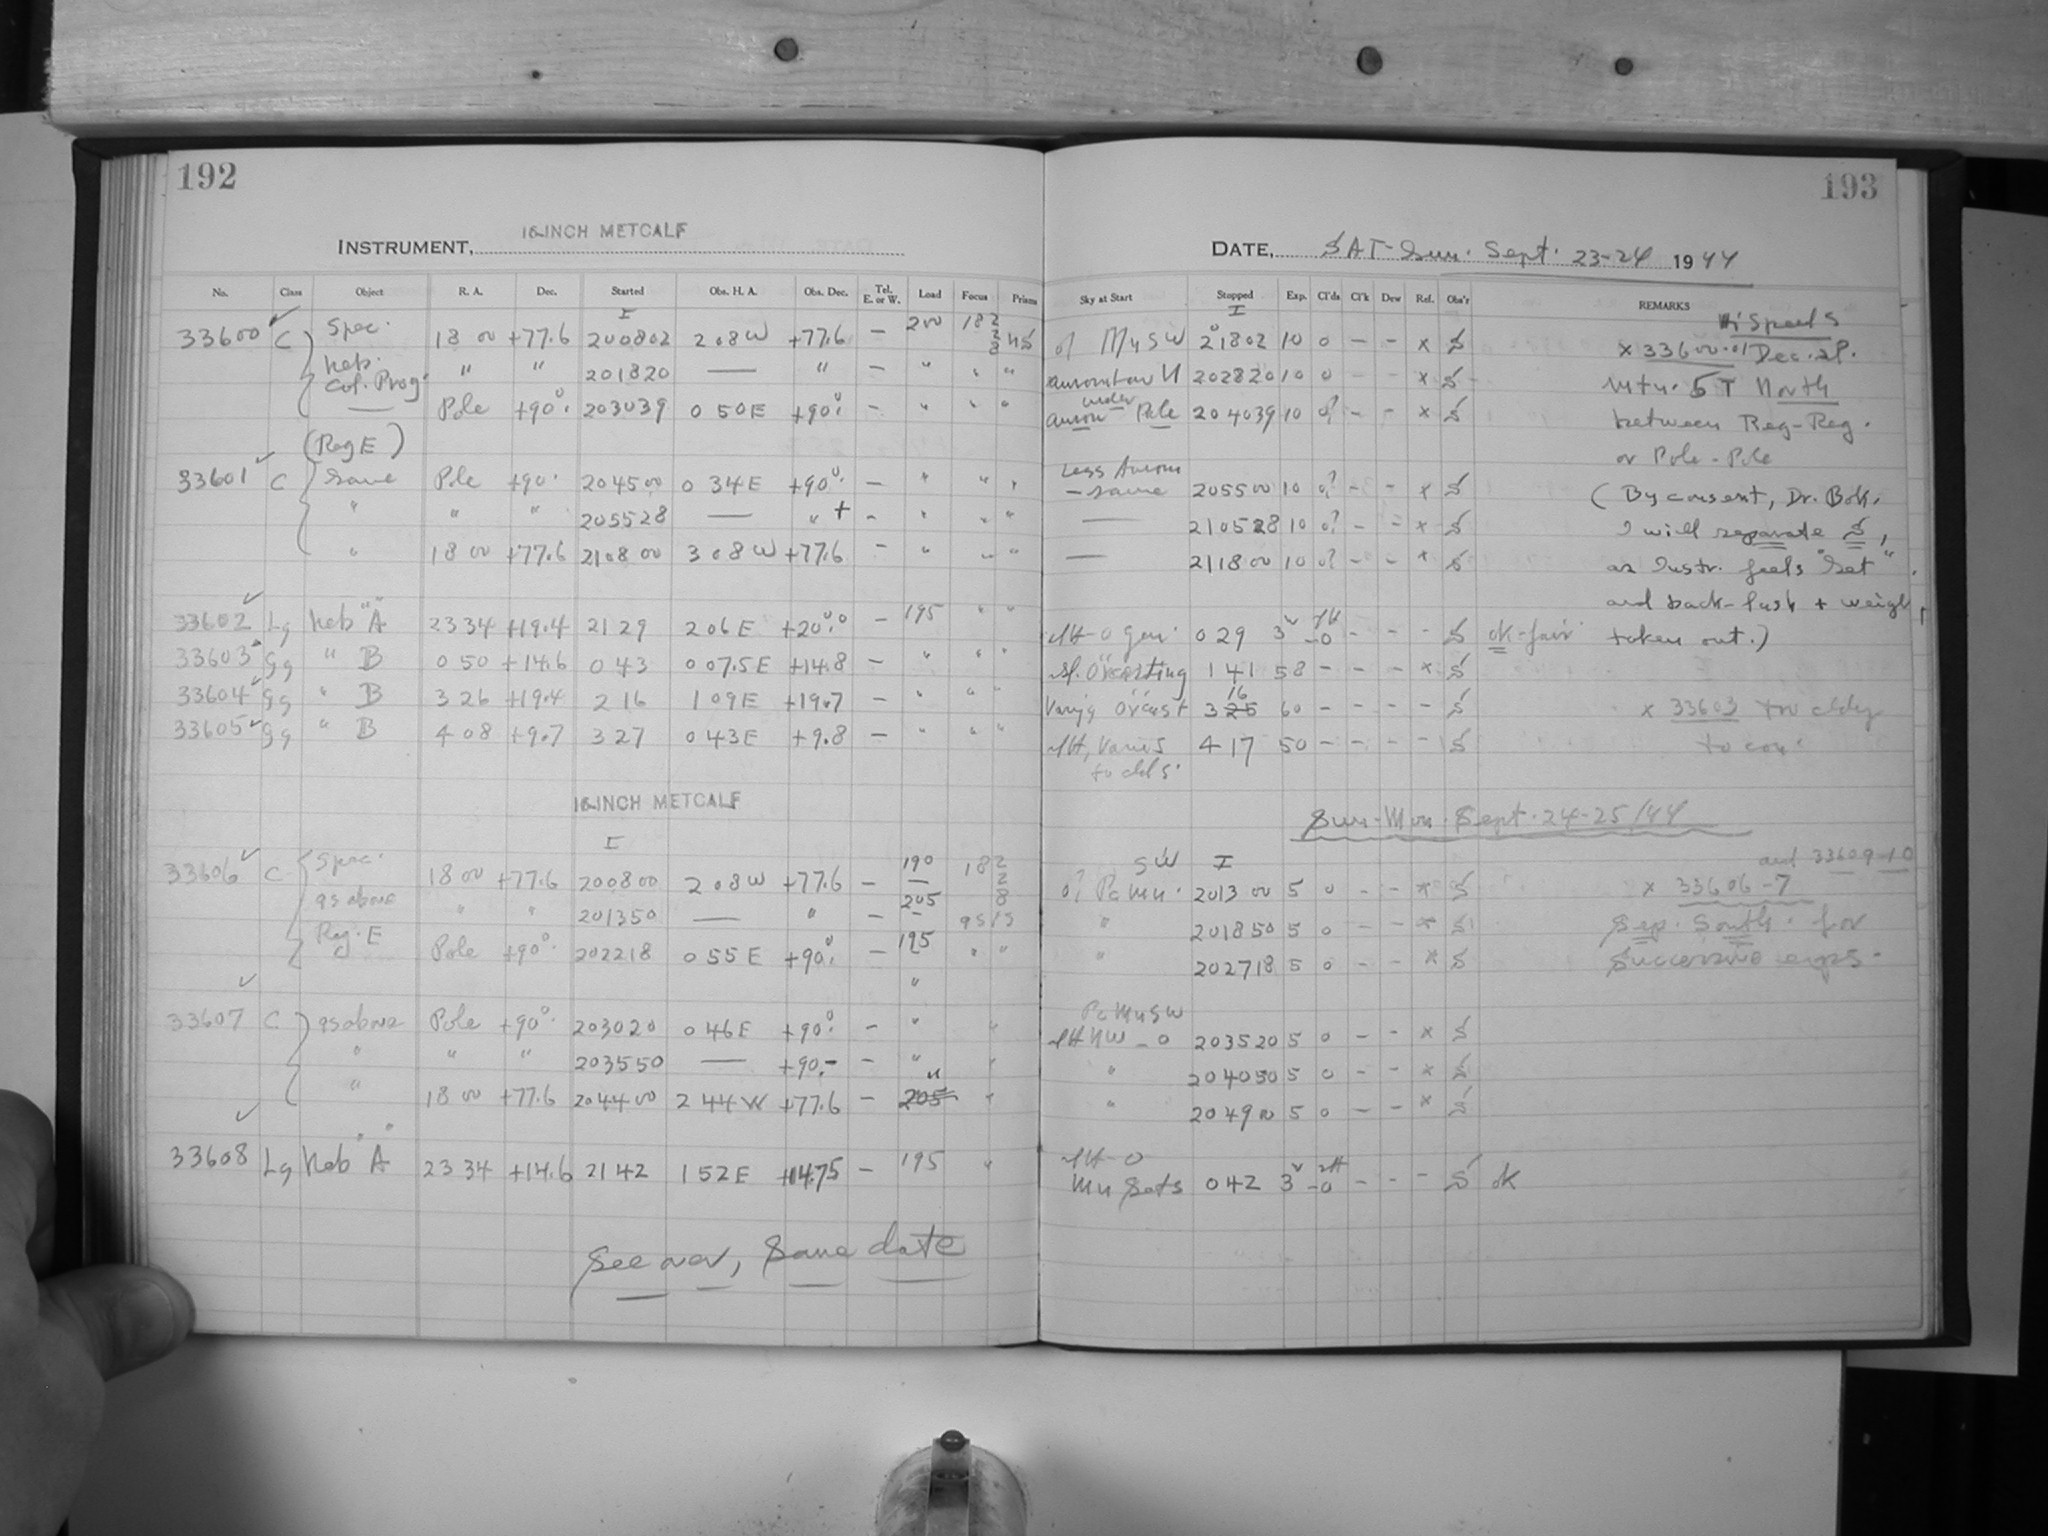 192
INSTRUMENT, 16-INCH METCALF
No. Class Object R. A. Dec. Started Obs. H. A. Obs. Dec. Tel. E. or W. Load Focus Prisms
I
33600 C Spec. 18 00 +77.6 200802 2 08 W +77.6 – 200 182
Neb. " " 201820 — " – " " "
Col. Prog. Pole +90°. 203039 0 50 E +90°. – " " "
(Reg E)
33601 C Same Pole +90. 204500 0 34 E +90°. – " " "
" " " 205528 — " + – " " "
" 18 00 +77.6 210800 3 08 W +77.6 – " " "
33602 Lg Neb "A" 23 34 +19.4 21 29 2 06 E +20°.0 – 195 " "
33603 Gg " B 0 50 +14.6 0 43 0 07.5 E +14.8 – " " "
33604 Gg " B 3 26 +19.4 2 16 1 09 E +19.7 – " " "
33605 Gg " B 4 08 +9.7 3 27 0 43 E +9.8 – " " "
16-INCH METCALF
I
33606 C Spec. 18 00 +77.6 200800 2 08 W +77.6 – 190 182
as above " " 201350 — " – 205
Reg. E Pole +90°. 202218 0 55 E +90°. – 195 " "
"
33607 C as above Pole +90°. 203020 0 46 E +90°. – " "
" " " 203550 — +90.– – " "
" 18 00 +77.6 204400 2 44 W +77.6 – 205 "
33608 Lg Neb "A" 23 34 +14.6 21 42 1 52 E +14.75 – 195 "
See over, Same date
193
DATE, SAT-Sun. Sept. 23-24 1944
Sky at Start Stopped Exp. Cl'ds Cl'k Dew Ref. Obs'r REMARKS
I
0? Mn SW 21802 10 0 – – x S
x 33600-01 Dec. sp.
202820 10 0 – – x S
5T North
under Pole 204039 10 0? – – x S
between Reg-Reg.
or Pole-Pole
Less Aurora
– same 205500 10 0? – – x S
(By consent, Dr. Bok,
— 210528 10 0? – – x S
I will separate S,
— 211800 10 0? – – x S
as Instr. feels "set"
and back-lash + weight
0 29 3 –0 – – – S ok-fair
taken out.)
1 41 58 – – – x S
3 25 16 60 – – – – S
x 33603 too cldy
4 17 50 – – – – S
to con.
Sun-Mon. Sept. 24-25/44
SW I
and 33609-10
0? Mn. 201300 5 0 – – x S
x 33606-7
" 201850 5 0 – – x S
Sep. South. for
" 202718 5 0 – – x S
successive exps.
Mn SW
NW – 0 203520 5 0 – – x S
" 204050 5 0 – – x S
" 204900 5 0 – – x S
Mn Sets 0 42 3 –0 – – – S ok